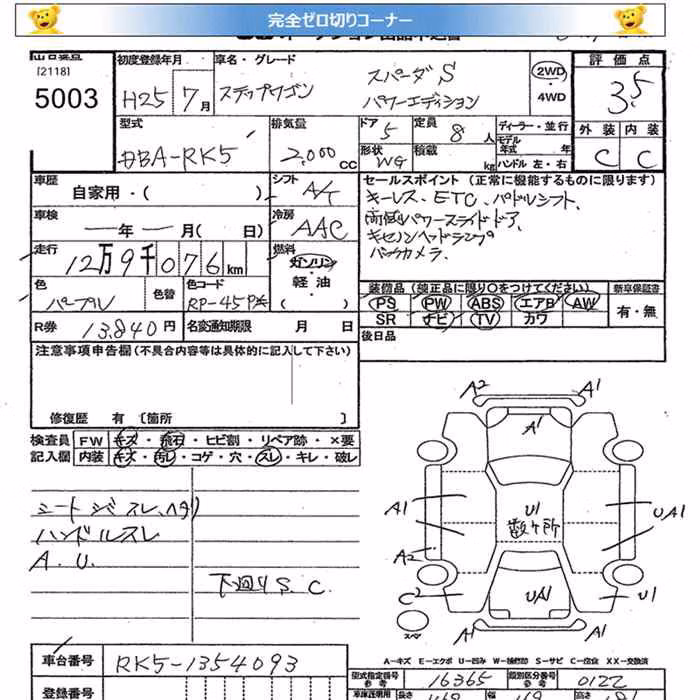 完全ゼロ切りコーナー
[2118]
5003
初度登録年月
H25 7月
車名・グレード
ステップワゴン スパーダS
パワーエディション
2WD
・
4WD
評価点
3.5
外装 内装
C C
型式
DBA-RK5
排気量
2,000 CC
ドア 5
定員 8人
形状 WG
積載 kg
ディーラー・並行
モデル年式 年
ハンドル 左・右
車歴
自家用・( )
シフト
A/T
車検
年 月( 日)
冷房
AAC
走行
12万9千076km
燃料
ガソリン
軽・油
( )
セールスポイント (正常に機能するものに限ります)
キーレス、ETC、パドルシフト、
両側パワースライドドア、
キセノンヘッドランプ
バックカメラ、
色
パープル
色替
色コード
RP-45P
装備品 (純正品に限り○をつけてください)
PS PW ABS エアB AW
SR ナビ TV カワ
新車保証書
有・無
R券 13,840円
名変通知期限 月 日
後日品
注意事項申告欄(不具合内容等は具体的に記入して下さい)
修復歴 有 [箇所 ]
検査員
記入欄
FW キズ・飛石・ヒビ割・リペア跡・×要
内装 キズ・汚レ・コゲ・穴・スレ・キレ・破レ
シートシワスレ、ヘタリ
ハンドルスレ
A.U.
下廻りS.C.
A2 A1
A1
A1 U1 UA1
数ヶ所
A2
C2 UA1 U1
スペア
A1 A1
A-キズ E-エクボ U-凹み W-補修跡 S-サビ C-腐食 XX-交換済
車台番号
RK5-1354093
型式指定番号
参考
16365
類別区分番号
参考
0122
登録番号
車庫証明用
長さ